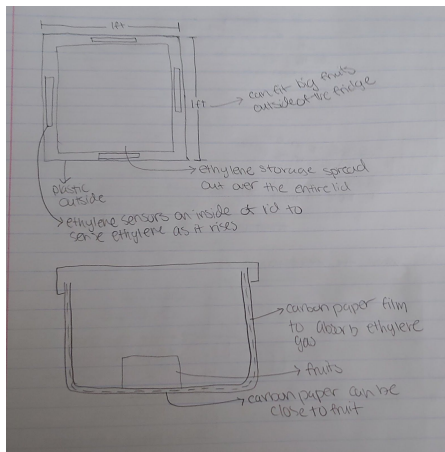 1ft
1ft
can fit big fruits
outside of the fridge
ethylene storage spread
out over the entire lid
plastic
outside
ethylene sensors on inside of lid to
sense ethylene as it rises
carbon paper film
to absorb ethylene
gas
fruits
carbon paper can be
close to fruit